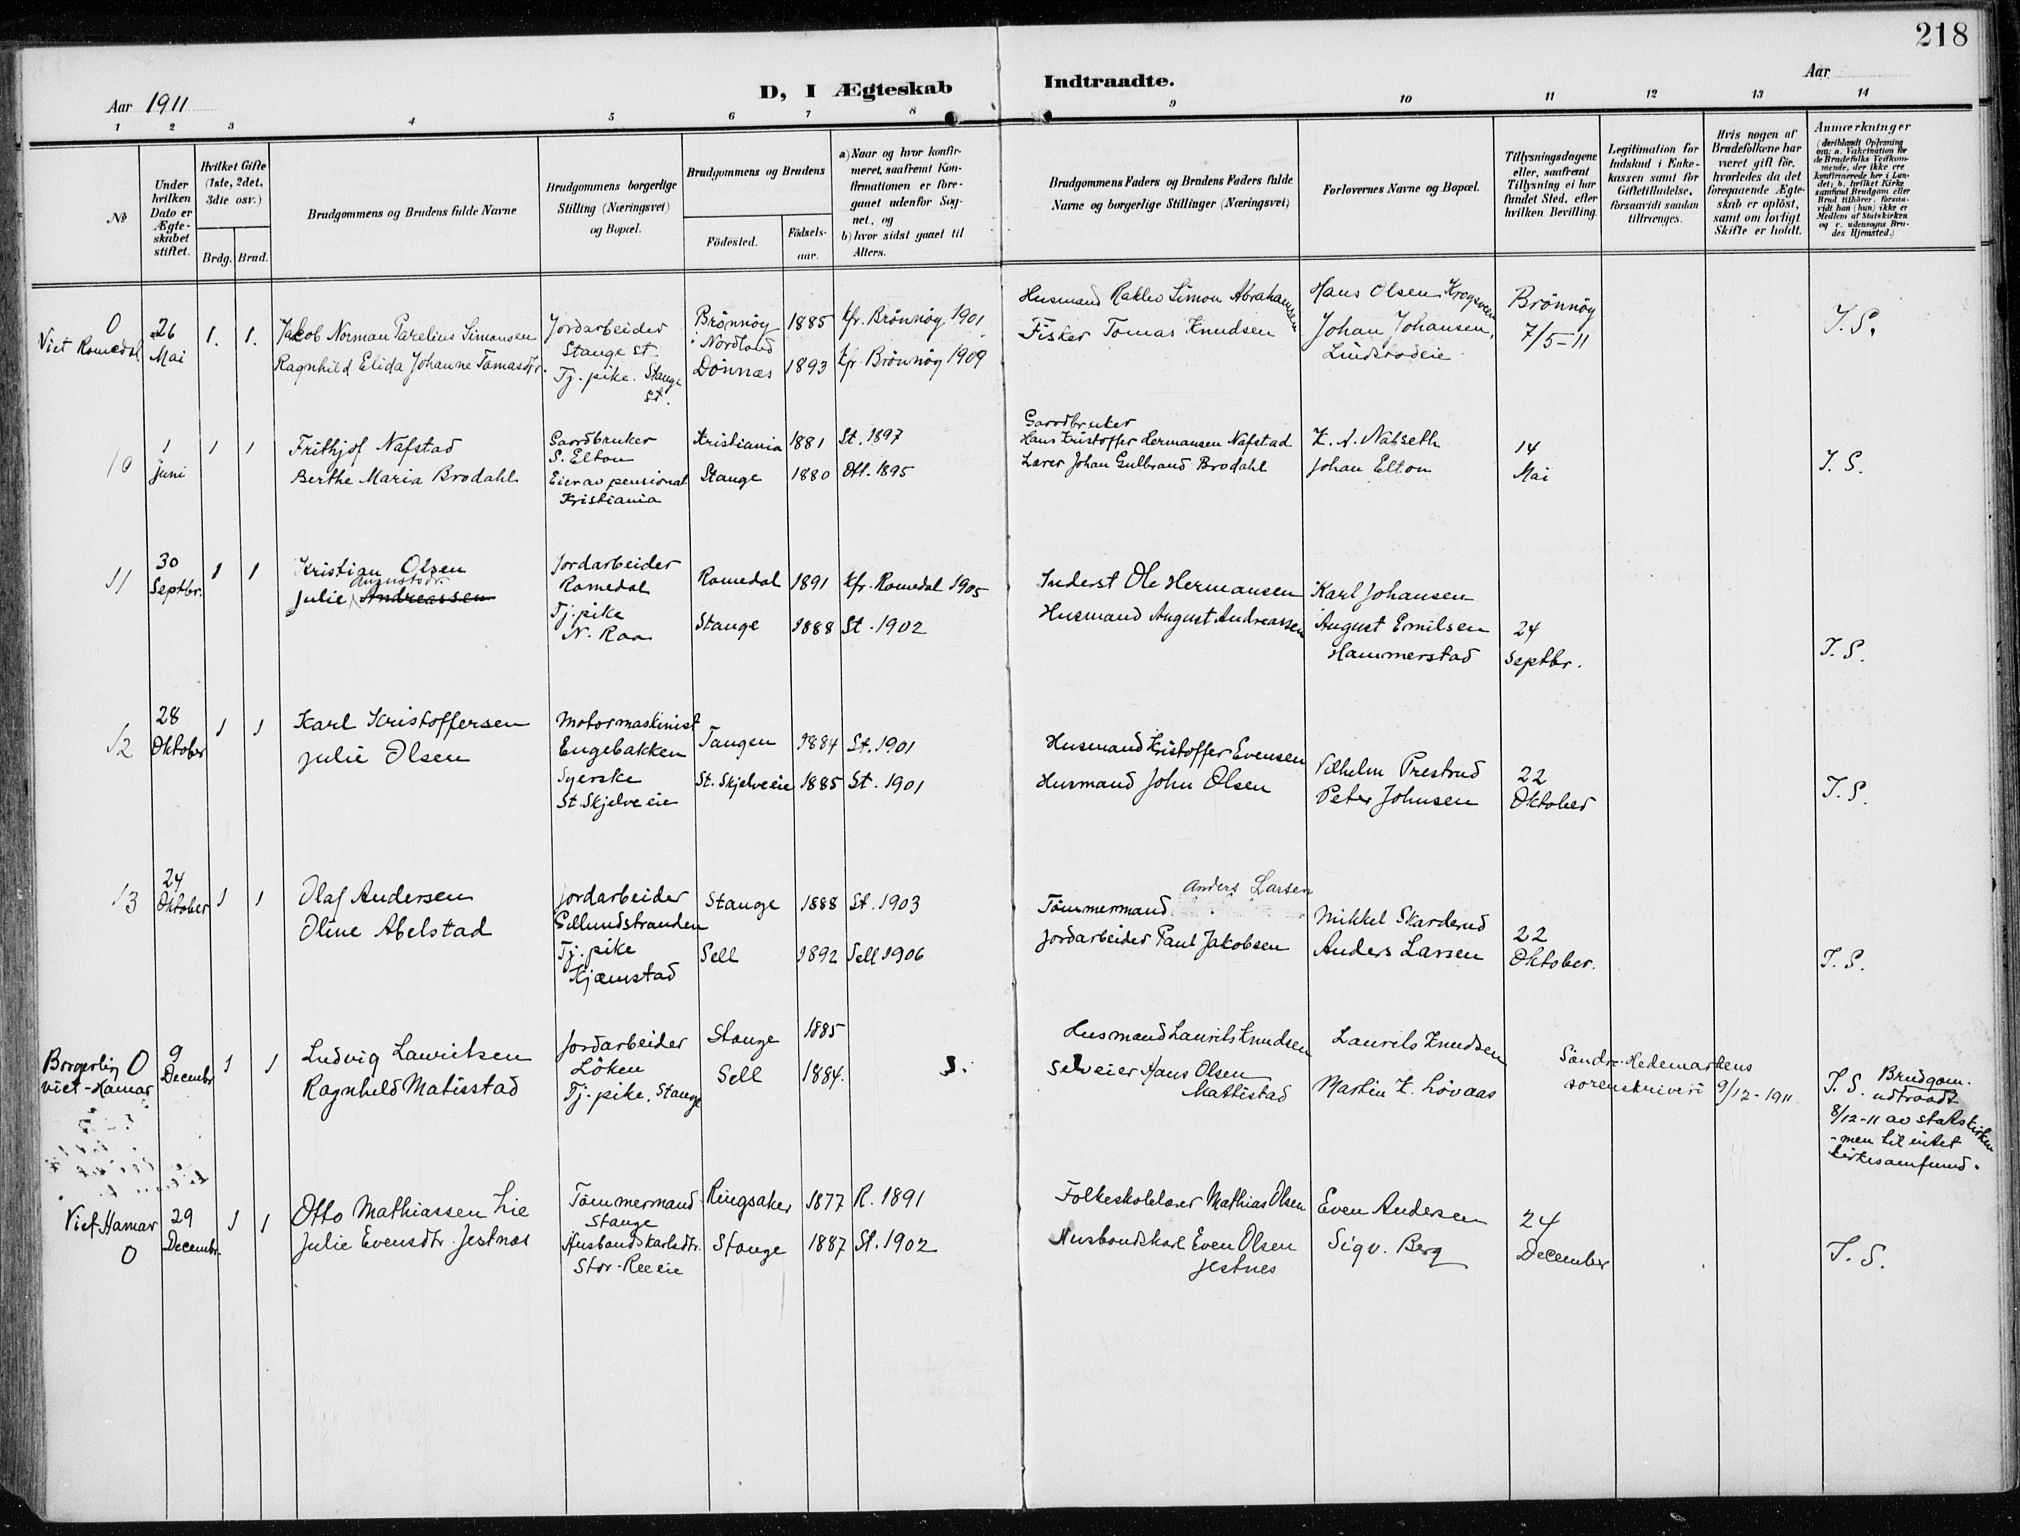 218
D, I Ægteskab Indtraadte.
Aar 1911
Aar
1 2 3 4 5 6 7 8 9 10 11 12 13 14
No
Under hvilken Dato er Ægteskabet stiftet.
Hvilket Gifte (1ste, 2det, 3die osv.)
Brdg. Brud.
Brudgommens og Brudens fulde Navne
Brudgommens borgerlige Stilling (Næringsvei) og Bopæl.
Brudgommens og Brudens
Födested.
Födselsaar.
a) Naar og hvor konfirmeret, saafremt Konfirmationen er foregaaet udenfor Sognet, og
b) hvor sidst gaaet til Alters.
Brudgommens Faders og Brudens Faders fulde Navne og borgerlige Stillinger (Næringsvei)
Forlovernes Navne og Bopæl.
Tillysningsdagene eller, saafremt Tillysning ei har fundet Sted, efter hvilken Bevilling.
Legitimation for Indskud i Enkekassen samt for Giftetilladelse, forsaavidt saadan tiltrænges.
Hvis nogen af Brudefolkene har været gift för, hvorledes da det foregaaende Ægteskab er oplöst, samt om lovligt Skifte er holdt.
Anmærkninger
(deriblandt Oplysning om: a. Vakcination for de Brudefolks Vedkommende, der ikke ere konfirmerede her i Landet; b. hvilket Kirkesamfund Brudgom eller Brud tilhörer, forsaavidt han (hun) ikke er Medlem af Statskirken og c. udensogns Brudes Hjemsted.)
0
Viet Romedal
26 Mai
1. 1.
Jakob Norman Parelius Simonsen
Ragnhild Elida Johanne Tomasdtr.
Jordarbeider
Stange st.
Tj. pike. Stange st.
Brönnöy i Nordland 1885 kfr. Brönnöy 1901
Dönnæs 1893 kfr. Brönnöy 1909
Husmand Simon Abrahamsen
Fisker Tomas Knudsen
Hans Olsen
Johan Johansen,
Brönnöy
7/5-11
I. S.
10
1 juni
1 1
Frithjof Nafstad
Berthe Maria Brodahl
Gaardbruker
S. Elton
Eier av pensionat
Kristiania
Kristiania 1881 St. 1897
Stange 1880 Ott. 1895
Gaardbruker
Hans Kristoffer Hermansen Nafstad
Lærer Johan Gulbrand Brodahl
K. A. Nabseth
Johan Elton
14
Mai
I. S.
11
30 Septbr.
1 1
Kristian Olsen
Augustsdr.
Julie Andreassen
Jordarbeider
Romedal
Tj. pike
N. Raa
Romedal 1891 kfr. Romedal 1905
Stange 1888 St. 1902
Inderst Ole Hermansen
Husmand August Andreassen
Karl Johansen
August Emilsen
Hammerstad
24
Septbr.
I. S.
12
28 Oktober
1 1
Karl Kristoffersen
Julie Olsen
Motormaskinist
Engebakken
Syerske
St. Skjelve eie
Tangen 1884 St. 1901
St. Skjelve eie 1885 St. 1901
Husmand Kristoffer Evensen
Husmand John Olsen
Vilhelm Prestrud
Peter Johnsen
22
Oktober
I. S.
13
24 Oktober
1 1
Olaf Andersen
Oline Abelstad
Jordarbeider
Gillundstranden
Tj. pike
Kjæmstad
Stange 1888 St. 1903
Sell 1892 Sell 1906
Anders Larsen
Tömmermand
Jordarbeider Paul Jakobsen
Mikkel Skarderud
Anders Larsen
22
Oktober.
I. S.
Borgerlig 0
viet-Hamar
9 Decembr
1 1
Ludvig Lauritsen
Ragnhild Matisstad
Jordarbeider
Löken
Tj. pike, Stange
Stange 1885
Sell 1884.
Husmand Laurits Knudsen
Selveier Hans Olsen
Mattistad
Laurits Knudsen
Martin K. Lövaas
Söndre Hedemarkens
sorenskriveri 9/12-1911
I. S. Brudgom.
udtraadt
8/12-11 av statskirken
-men til intet
kirkesamfund.
Viet-Hamar
0
29 Decembr
1 1
Otto Mathiassen Lie
Julie Evensdtr. Jestnes
Tömmermand
Stange
Husbandskarlsdtr.
Stor-Ree eie
Ringsaker 1877 R. 1891
Stange 1887 St. 1902
Folkeskolelærer Mathias Olsen
Husbondskarl Even Olsen
Jestnes
Even Andersen
Sigv. Berg
24
December
I. S.